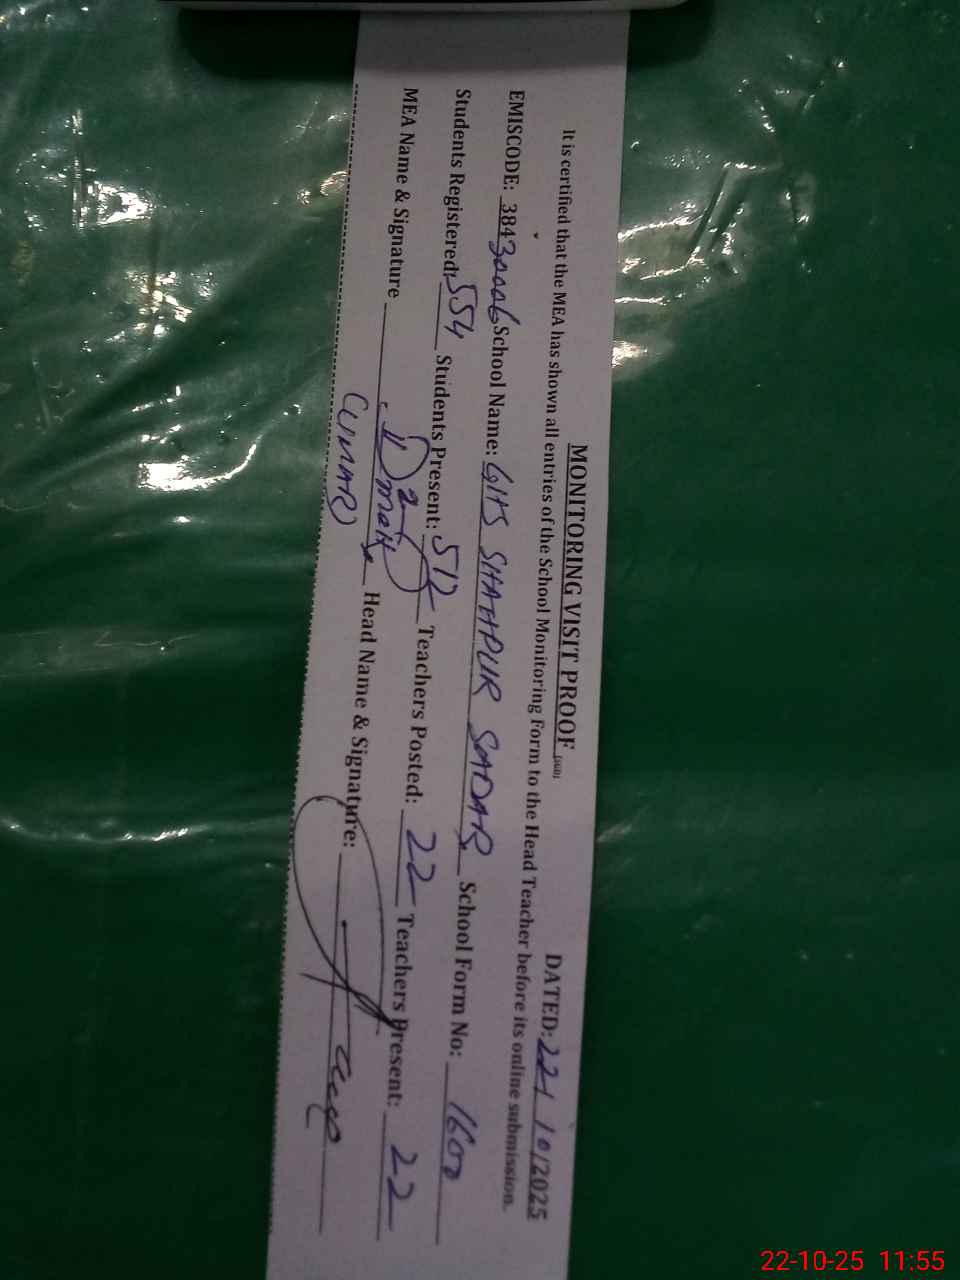 MONITORING VISIT PROOF
DATED: 22/10/2025
It is certified that the MEA has shown all entries of the School Monitoring Form to the Head Teacher before its online submission.
EMISCODE: 38430006 School Name: GHS SHAHPUR SADAR School Form No: 1600
Students Registered: 554 Students Present: 512 Teachers Posted: 22 Teachers Present: 22
MEA Name & Signature Head Name & Signature:
(UMAR)
22-10-25 11:55